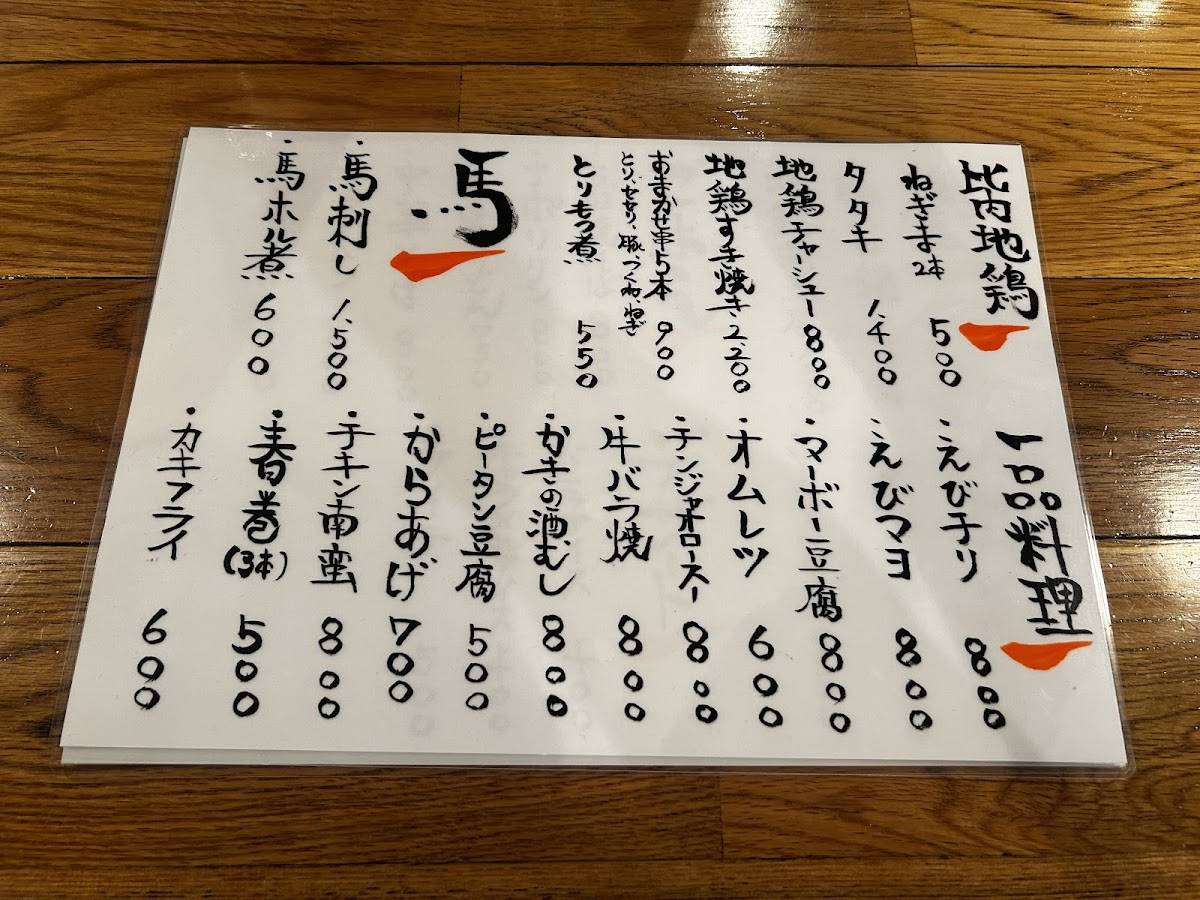 比内地鶏
ねぎま2本 500
タタキ 1,400
地鶏チャーシュー 800
地鶏すき焼き 2,200
おまかせ串5本 900
とり、せせり、豚、つくね、ねぎ
とりもつ煮 550
馬
・馬刺し 1,500
・馬ホル煮 600
一品料理
・えびチリ 800
・えびマヨ 800
・マーボー豆腐 800
・オムレツ 600
・チンジャオロースー 800
・牛バラ焼 800
・かきの酒むし 800
・ピータン豆腐 500
・からあげ 700
・チキン南蛮 800
・春巻(3本) 500
・カキフライ 600